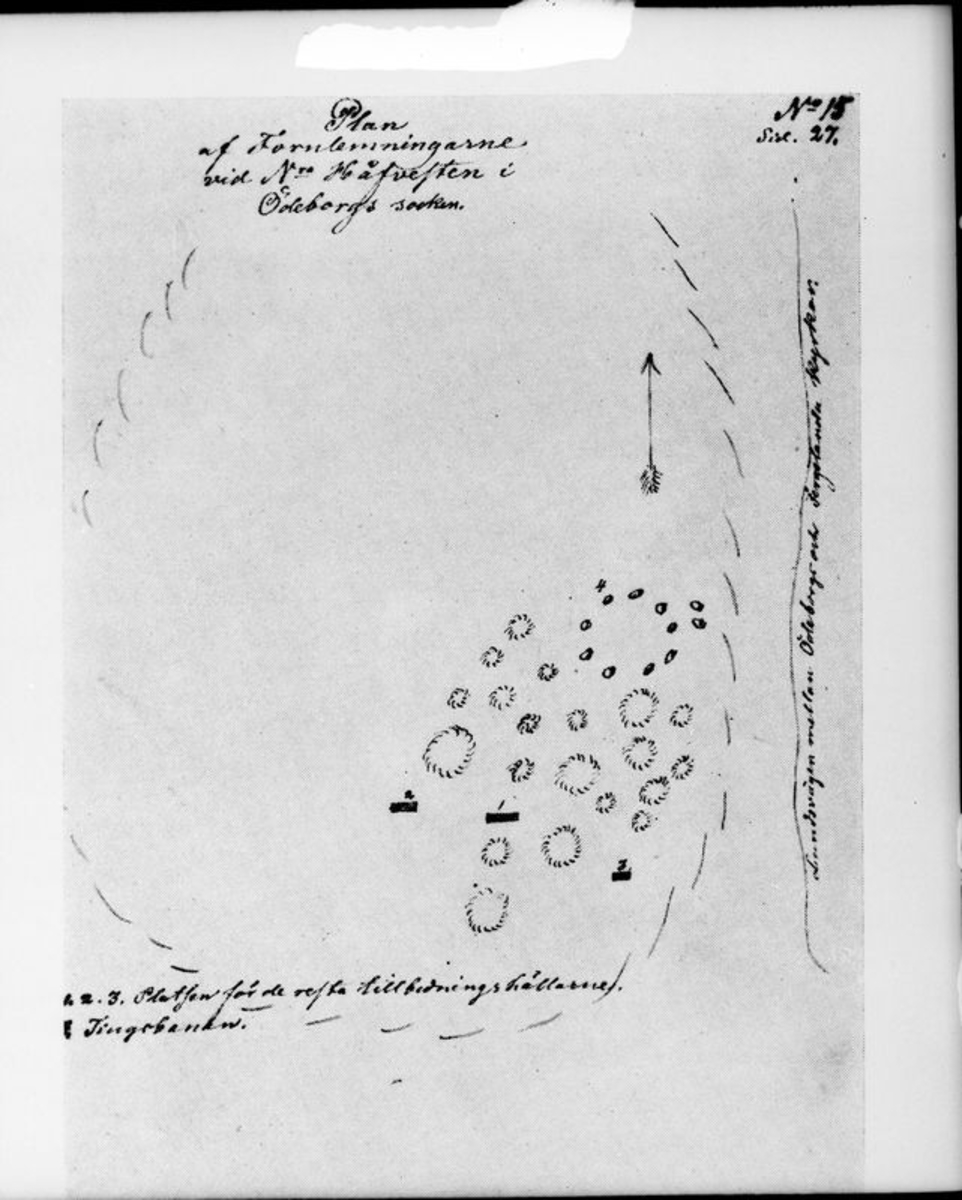 Plan
af Fornlemningarne
vid Nra Håfvesten i
Ödeborgs socken.
No 15
Sid. 27.
Landsvägen mellan Ödeborgs och Fergelanda kyrkor.
4
2
1
3
1. 2. 3. Platsen för de resta tillbedningshällarne).
4 Tingsbanan.